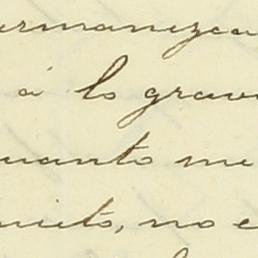 ermanezca
á lo grav
uanto me
uieto, no e